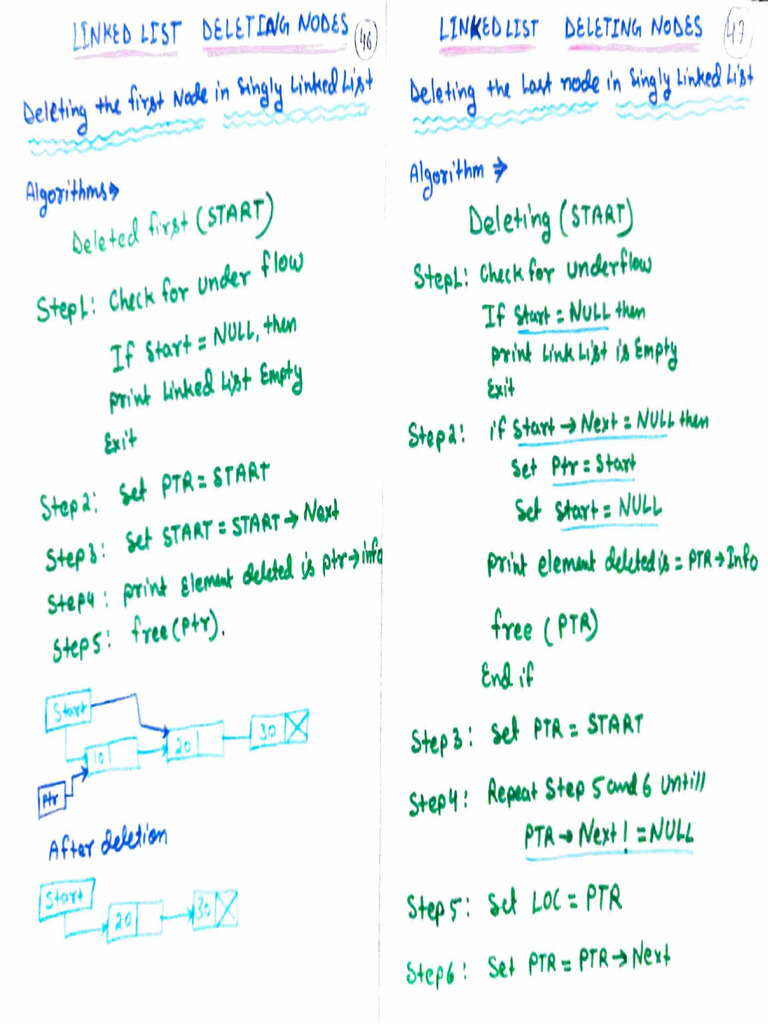 LINKED LIST DELETING NODES 46
Deleting the first Node in Singly Linked List
Algorithms→
Deleted first (START)
Step1: Check for under flow
If Start = NULL, then
print Linked List Empty
Exit
Step2: Set PTR = START
Step3: Set START = START → Next
Step4: print Element deleted is ptr → info
Step5: free(Ptr).
Start
10
20
30
Ptr
After deletion
Start
20
30
LINKED LIST DELETING NODES 47
Deleting the Last node in Singly Linked List
Algorithm ⇒
Deleting (START)
Step1: Check for underflow
If Start = NULL then
print Link List is Empty
Exit
Step2: if Start → Next = NULL then
Set Ptr = Start
Set Start = NULL
print element deleted is = PTR → Info
free (PTR)
End if
Step3: Set PTR = START
Step4: Repeat Step 5 and 6 Untill
PTR → Next != NULL
Step5: Set LOC = PTR
Step6: Set PTR = PTR → Next